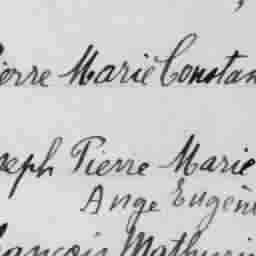 ierre Marie Constan
seph Pierre Marie
Ange Eugène
ançois Mathurin